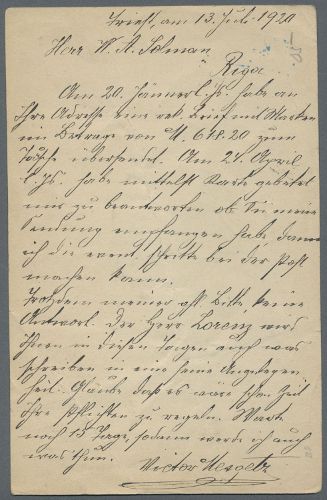 Triest, am 13. Juli 1920
Herr W. A. Solman
Riga
Am 20. Jänner l. Js. habe an
ihre Adresse eine rek. Brief mit Marken
im Betrage von M. 648.20 zum
übersendet. Am 24. April
l. Js. habe mittelst Karte gebetet
mir zu beantworten ob Sie meine
Sendung empfangen habe, damit
ich die event. Schritte bei der Post
machen kann.
Trotzdem meiner oft. Bitte, keine
Antwort. Der Herr Lorenz wird
Ihnen in diesen Tagen auch was
schreiben in eine seine Angelegen
heit. Glaube dass es wäre schon Zeil
Ihre Pflichten zu regeln. Warte
noch 15 Tage, sodann werde ich auch
was thun.
Victor